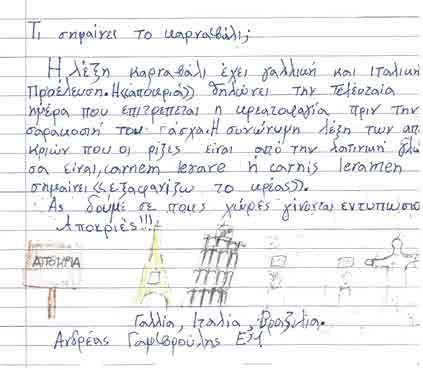 Τι σημαίνει το καρναβάλι;
Η λέξη καρναβάλι έχει γαλλική και ιταλική
Προέλευση. Η «αποκριά» δηλώνει την τελευταία
ημέρα που επιτρέπεται η κρεατοφαγία πριν την
σαρακοστή του Πάσχα. Η συνώνυμη λέξη των απο
κριών που οι ρίζες είναι από την λατινική γλώσ
σα είναι, carnem levare ή carnis levamen
σημαίνει «εξαφανίζω το κρέας».
Ας δούμε σε ποιες χώρες γίνονται εντυπωσια
Αποκριές!!!
ΑΠΟΚΡΙΑ
Γαλλία, Ιταλία, Βραζιλία.
Ανδρέας